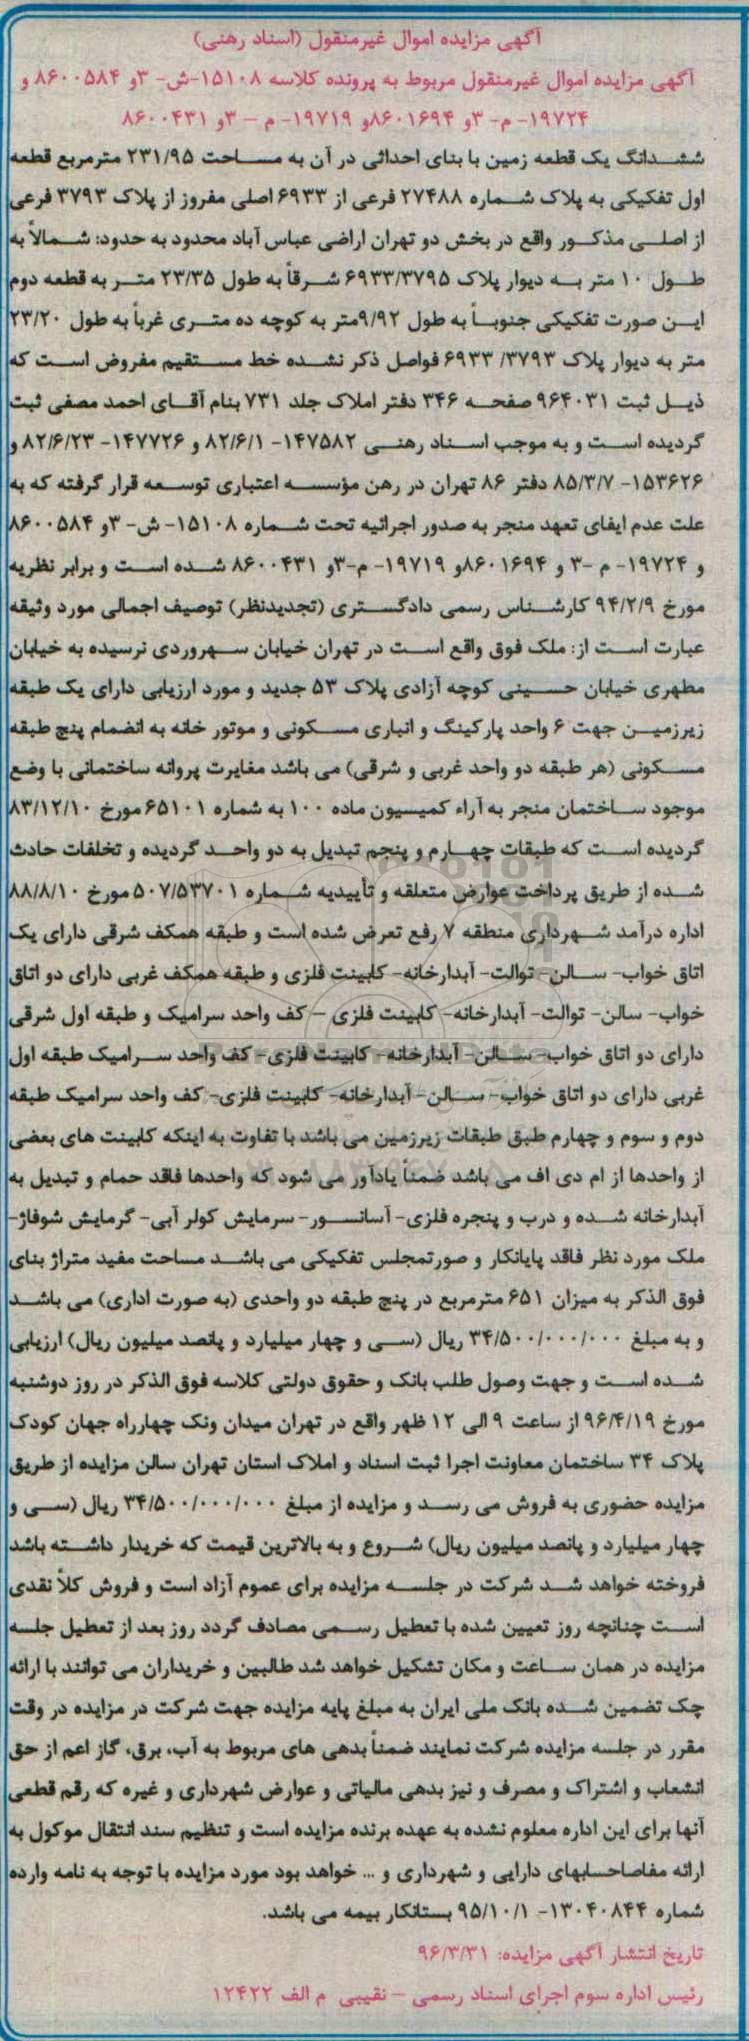 آگهی مزایده اموال غیرمنقول (اسناد رهنی)
آگهی مزایده اموال غیرمنقول مربوط به پرونده کلاسه ۱۵۱۰۸-ش- ۳و ۸۶۰۰۵۸۴ و
۱۹۷۲۴- م- ۳و ۸۶۰۱۶۹۴و ۱۹۷۱۹- م – ۳و ۸۶۰۰۴۳۱
ششدانگ یک قطعه زمین با بنای احداثی در آن به مساحت ۲۳۱/۹۵ مترمربع قطعه
اول تفکیکی به پلاک شماره ۲۷۴۸۸ فرعی از ۶۹۳۳ اصلی مفروز از پلاک ۳۷۹۳ فرعی
از اصلی مذکور واقع در بخش دو تهران اراضی عباس آباد محدود به حدود: شمالاً به
طول ۱۰ متر به دیوار پلاک ۶۹۳۳/۳۷۹۵ شرقاً به طول ۲۳/۳۵ متر به قطعه دوم
این صورت تفکیکی جنوباً به طول ۹/۹۲متر به کوچه ده متری غرباً به طول ۲۳/۲۰
متر به دیوار پلاک ۳۷۹۳/ ۶۹۳۳ فواصل ذکر نشده خط مستقیم مفروض است که
ذیل ثبت ۹۶۴۰۳۱ صفحه ۳۴۶ دفتر املاک جلد ۷۳۱ بنام آقای احمد مصفی ثبت
گردیده است و به موجب اسناد رهنی ۱۴۷۵۸۲- ۸۲/۶/۱ و ۱۴۷۷۲۶- ۸۲/۶/۲۳ و
۱۵۳۶۲۶- ۸۵/۳/۷ دفتر ۸۶ تهران در رهن مؤسسه اعتباری توسعه قرار گرفته که به
علت عدم ایفای تعهد منجر به صدور اجرائیه تحت شماره ۱۵۱۰۸- ش- ۳و ۸۶۰۰۵۸۴
و ۱۹۷۲۴- م -۳ و ۸۶۰۱۶۹۴و ۱۹۷۱۹- م-۳و ۸۶۰۰۴۳۱ شده است و برابر نظریه
مورخ ۹۴/۲/۹ کارشناس رسمی دادگستری (تجدیدنظر) توصیف اجمالی مورد وثیقه
عبارت است از: ملک فوق واقع است در تهران خیابان سهروردی نرسیده به خیابان
مطهری خیابان حسینی کوچه آزادی پلاک ۵۳ جدید و مورد ارزیابی دارای یک طبقه
زیرزمین جهت ۶ واحد پارکینگ و انباری مسکونی و موتور خانه به انضمام پنج طبقه
مسکونی (هر طبقه دو واحد غربی و شرقی) می باشد مغایرت پروانه ساختمانی با وضع
موجود ساختمان منجر به آراء کمیسیون ماده ۱۰۰ به شماره ۶۵۱۰۱ مورخ ۸۳/۱۲/۱۰
گردیده است که طبقات چهارم و پنجم تبدیل به دو واحد گردیده و تخلفات حادث
شده از طریق پرداخت عوارض متعلقه و تأییدیه شماره ۵۰۷/۵۳۷۰۱ مورخ ۸۸/۸/۱۰
اداره درآمد شهرداری منطقه ۷ رفع تعرض شده است و طبقه همکف شرقی دارای یک
اتاق خواب- سالن- توالت- آبدارخانه- کابینت فلزی و طبقه همکف غربی دارای دو اتاق
خواب- سالن- توالت- آبدارخانه- کابینت فلزی – کف واحد سرامیک و طبقه اول شرقی
دارای دو اتاق خواب- سالن- آبدارخانه- کابینت فلزی- کف واحد سرامیک طبقه اول
غربی دارای دو اتاق خواب- سالن- آبدارخانه- کابینت فلزی- کف واحد سرامیک طبقه
دوم و سوم و چهارم طبق طبقات زیرزمین می باشد با تفاوت به اینکه کابینت های بعضی
از واحدها از ام دی اف می باشد ضمناً یادآور می شود که واحدها فاقد حمام و تبدیل به
آبدارخانه شده و درب و پنجره فلزی- آسانسور- سرمایش کولر آبی- گرمایش شوفاژ-
ملک مورد نظر فاقد پایانکار و صورتمجلس تفکیکی می باشد مساحت مفید متراژ بنای
فوق الذکر به میزان ۶۵۱ مترمربع در پنج طبقه دو واحدی (به صورت اداری) می باشد
و به مبلغ ۳۴/۵۰۰/۰۰۰/۰۰۰ ریال (سی و چهار میلیارد و پانصد میلیون ریال) ارزیابی
شده است و جهت وصول طلب بانک و حقوق دولتی کلاسه فوق الذکر در روز دوشنبه
مورخ ۹۶/۴/۱۹ از ساعت ۹ الی ۱۲ ظهر واقع در تهران میدان ونک چهارراه جهان کودک
پلاک ۳۴ ساختمان معاونت اجرا ثبت اسناد و املاک استان تهران سالن مزایده از طریق
مزایده حضوری به فروش می رسد و مزایده از مبلغ ۳۴/۵۰۰/۰۰۰/۰۰۰ ریال (سی و
چهار میلیارد و پانصد میلیون ریال) شروع و به بالاترین قیمت که خریدار داشته باشد
فروخته خواهد شد شرکت در جلسه مزایده برای عموم آزاد است و فروش کلاً نقدی
است چنانچه روز تعیین شده با تعطیل رسمی مصادف گردد روز بعد از تعطیل جلسه
مزایده در همان ساعت و مکان تشکیل خواهد شد طالبین و خریداران می توانند با ارائه
چک تضمین شده بانک ملی ایران به مبلغ پایه مزایده جهت شرکت در مزایده در وقت
مقرر در جلسه مزایده شرکت نمایند ضمناً بدهی های مربوط به آب، برق، گاز اعم از حق
انشعاب و اشتراک و مصرف و نیز بدهی مالیاتی و عوارض شهرداری و غیره که رقم قطعی
آنها برای این اداره معلوم نشده به عهده برنده مزایده است و تنظیم سند انتقال موکول به
ارائه مفاصاحسابهای دارایی و شهرداری و ... خواهد بود مورد مزایده با توجه به نامه وارده
شماره ۱۳۰۴۰۸۴۴- ۹۵/۱۰/۱ بستانکار بیمه می باشد.
تاریخ انتشار آگهی مزایده: ۹۶/۳/۳۱
رئیس اداره سوم اجرای اسناد رسمی – نقیبی م الف ۱۲۴۲۲